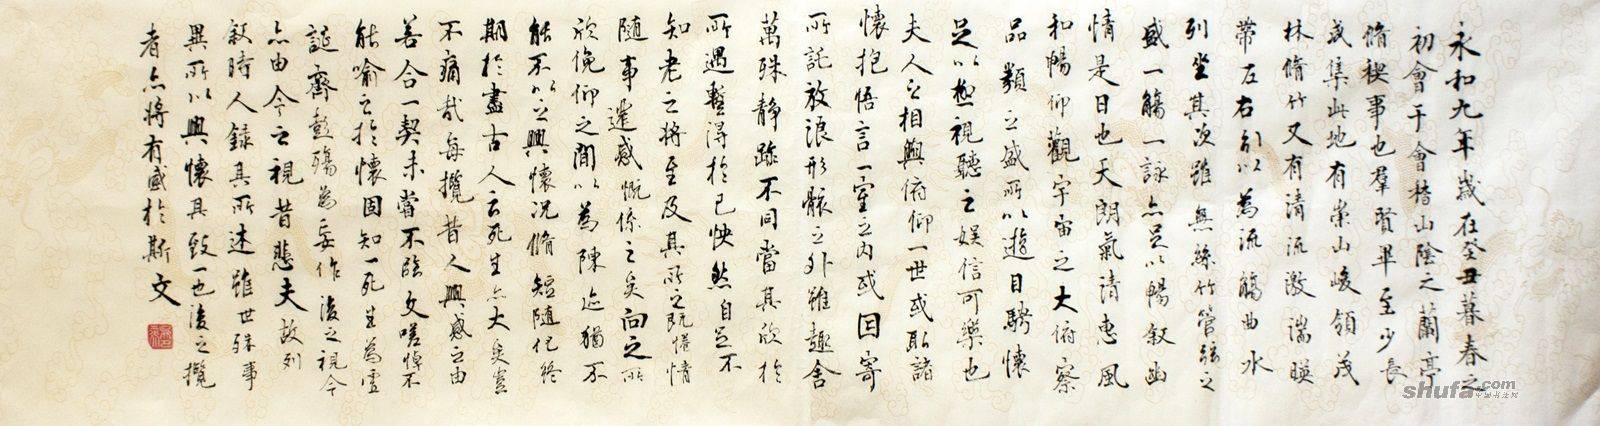 永和九年歲在癸丑暮春之
初會于會稽山陰之蘭亭
脩禊事也羣賢畢至少長
咸集此地有崇山峻領茂
林脩竹又有清流激湍暎
帶左右引以為流觴曲水
列坐其次雖無絲竹管弦之
盛一觴一詠亦足以暢敘幽
情是日也天朗氣清惠風
和暢仰觀宇宙之大俯察
品類之盛所以遊目騁懷
足以極視聽之娛信可樂也
夫人之相與俯仰一世或取諸
懷抱悟言一室之內或因寄
所託放浪形骸之外雖趣舍
萬殊靜躁不同當其欣於
所遇暫得於己快然自足不
知老之將至及其所之既惓情
隨事遷感慨係之矣向之所
欣俛仰之間以為陳迹猶不
能不以之興懷況脩短隨化終
期於盡古人云死生亦大矣豈
不痛哉每攬昔人興感之由
若合一契未嘗不臨文嗟悼不
能喻之於懷固知一死生為虛
誕齊彭殤為妄作後之視今
亦由今之視昔悲夫故列
敘時人錄其所述雖世殊事
異所以興懷其致一也後之攬
者亦將有感於斯文
shufa.com
中国书法网